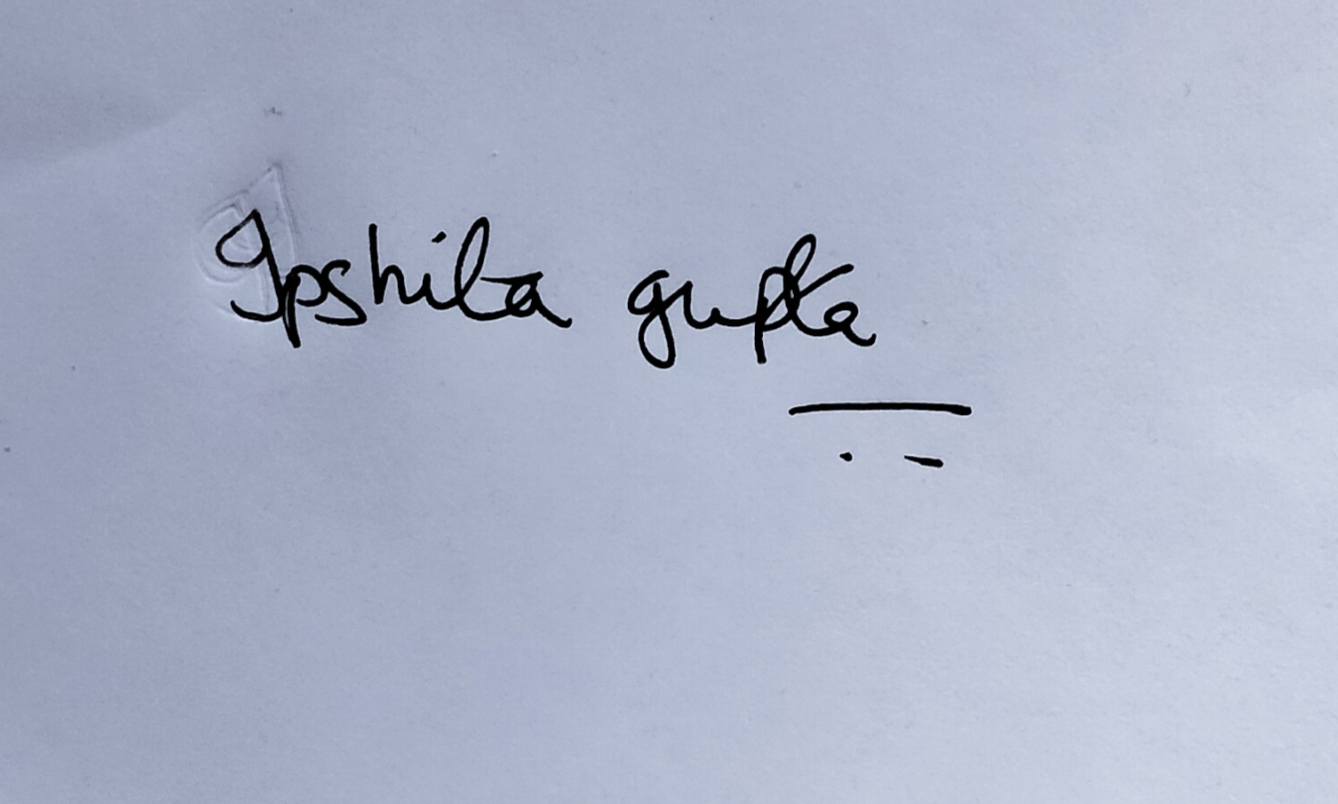 Ipshita gupta